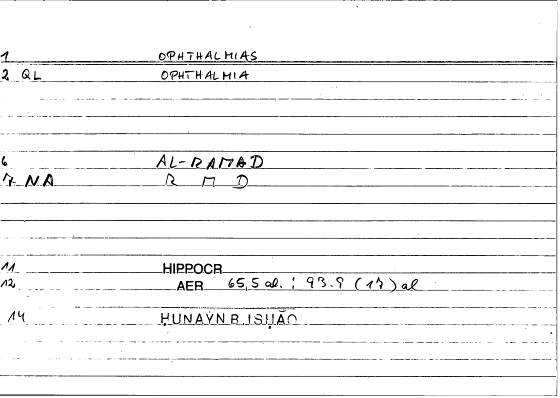 1 OPHTHALMIAS
2 QL OPHTHALMIA
6 AL-RAMAD
7 NA R M D
11 HIPPOCR
12 AER 65,5 al. : 93.9 (17) al
14 ḤUNAYN B. ISḤĀQ